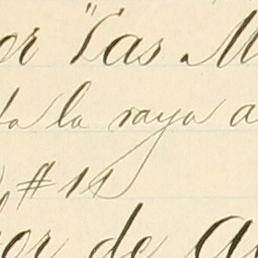 or "Las M
ta la raya a
# 11
or de a